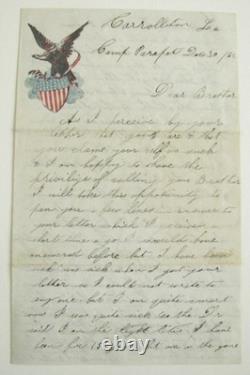 Carrollton La
Camp Parapet Dec 30 /62
Dear Brother
As I perceive by your
letter that you are & that
you claim your self as such
& I am hoping to have the
privilege of calling you Brother
I will take this opportunity to
pen you a few lines in answer to
your letter which I received a
short time ago I should have
answered before but I have been
sick was sick when I got your
letter so I could not write to
any one but I am quite smart
now I was quite sick the Dr
said I was the
for 15 in the